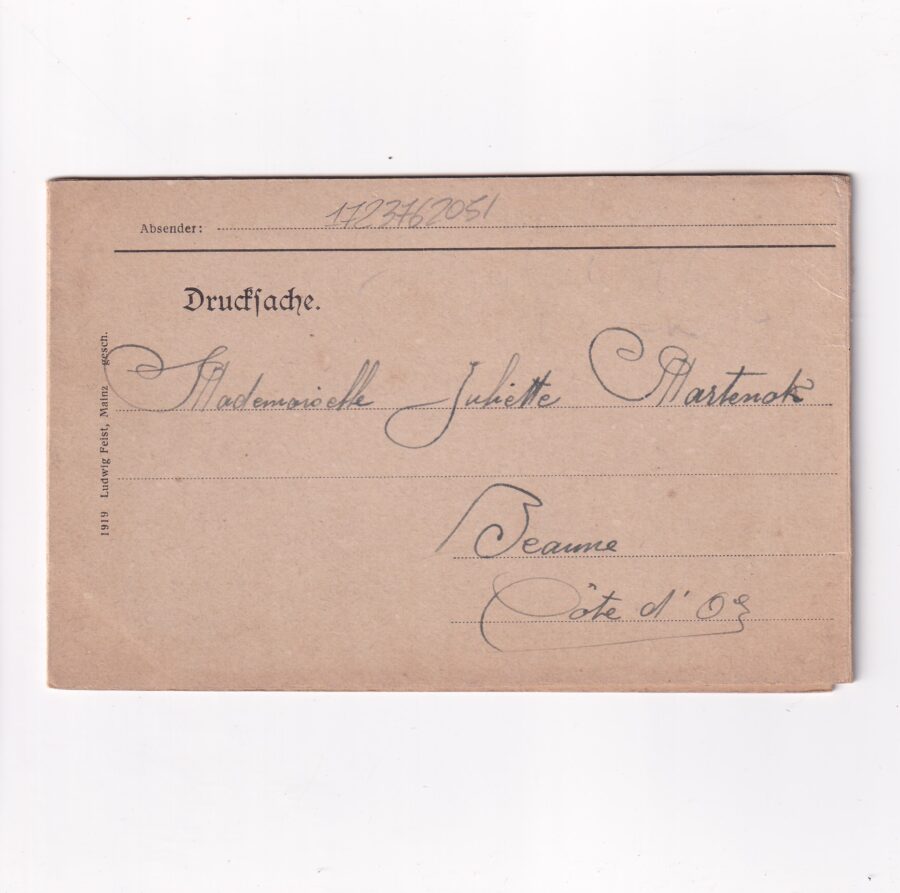 Absender: 1723762051
Drucksache.
Mademoiselle Juliette Martenot
Beaune
Côte d'Or
1919 Ludwig Feist, Mainz gesch.